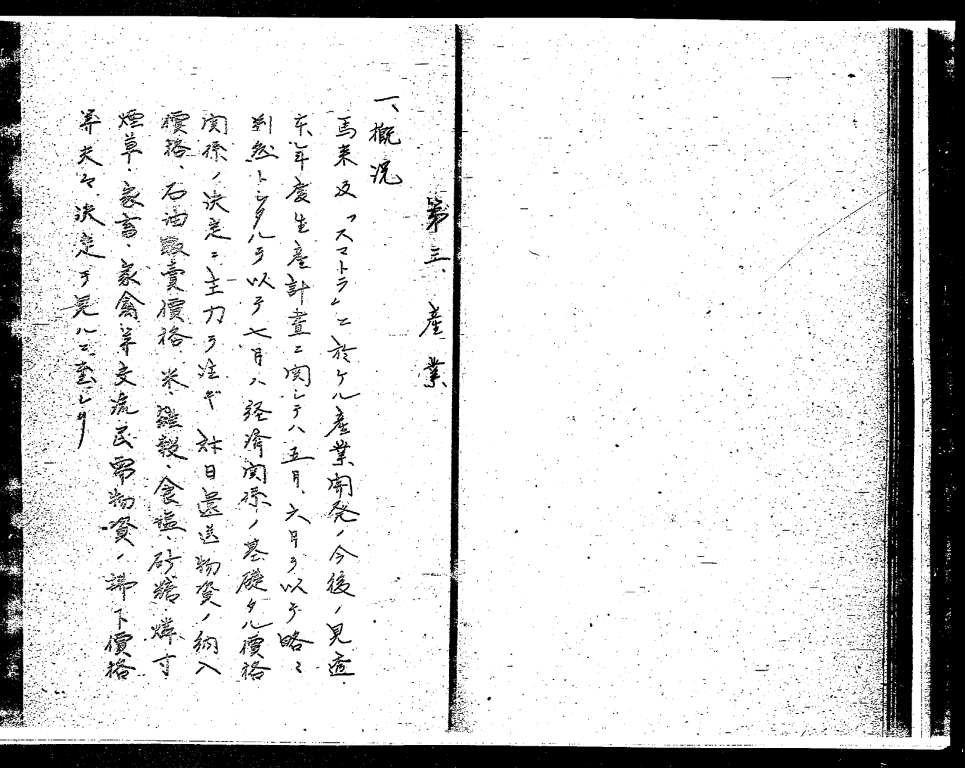 第三、産業
一、概況
馬来及「スマトラ」ニ於ケル産業開発ノ今後ノ見透
本年度生産計畫ニ関シテハ五月、六月ヲ以テ略々
判然トシタルヲ以テ七月ハ経済関係ノ基礎タル價格
関係ノ決定ニ主力ヲ注ギ 対日還送物資ノ納入
價格、石油販賣價格、米、雑穀、食塩、砂糖、燐寸
煙草、家畜、家禽等交流民需物資ノ拂下價格
等夫々決定ヲ見ルニ至レリ